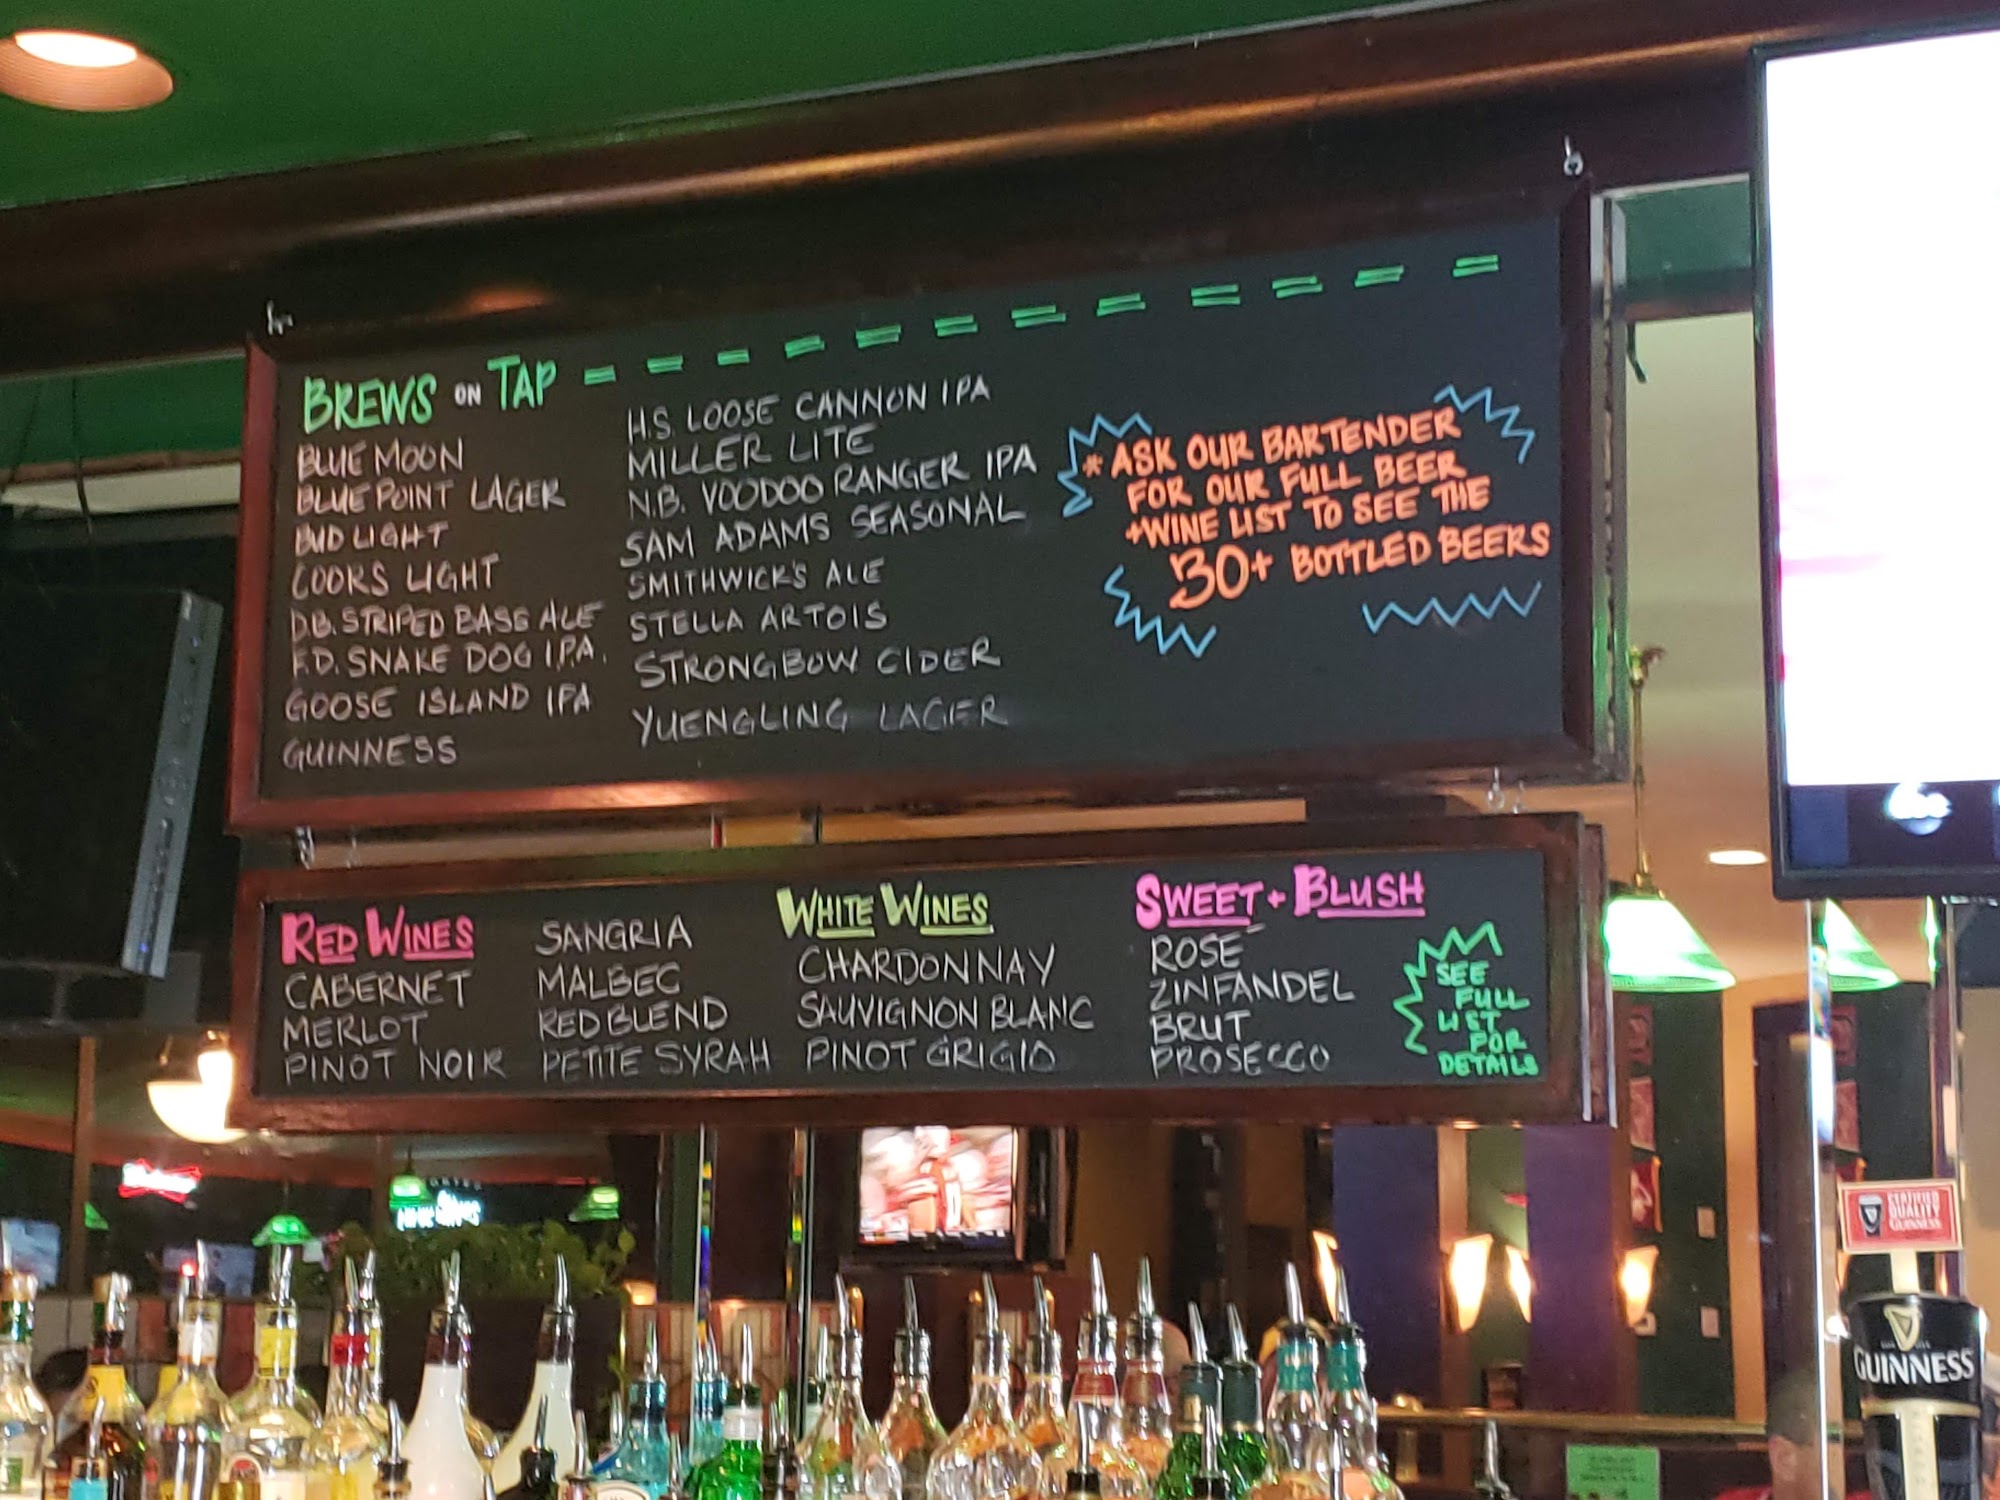 BREWS ON TAP
BLUE MOON
BLUE POINT LAGER
BUD LIGHT
COORS LIGHT
D.B. STRIPED BASS ALE
F.D. SNAKE DOG I.P.A.
GOOSE ISLAND IPA
GUINNESS
H.S. LOOSE CANNON IPA
MILLER LITE
N.B. VOODOO RANGER IPA
SAM ADAMS SEASONAL
SMITHWICK'S ALE
STELLA ARTOIS
STRONGBOW CIDER
YUENGLING LAGER
* ASK OUR BARTENDER
FOR OUR FULL BEER
+WINE LIST TO SEE THE
30+ BOTTLED BEERS
RED WINES
CABERNET
MERLOT
PINOT NOIR
SANGRIA
MALBEC
RED BLEND
PETITE SYRAH
WHITE WINES
CHARDONNAY
SAUVIGNON BLANC
PINOT GRIGIO
SWEET + BLUSH
ROSÉ
ZINFANDEL
BRUT
PROSECCO
SEE
FULL
LIST
FOR
DETAILS
abc
CERTIFIED
QUALITY
GUINNESS
GUINNESS